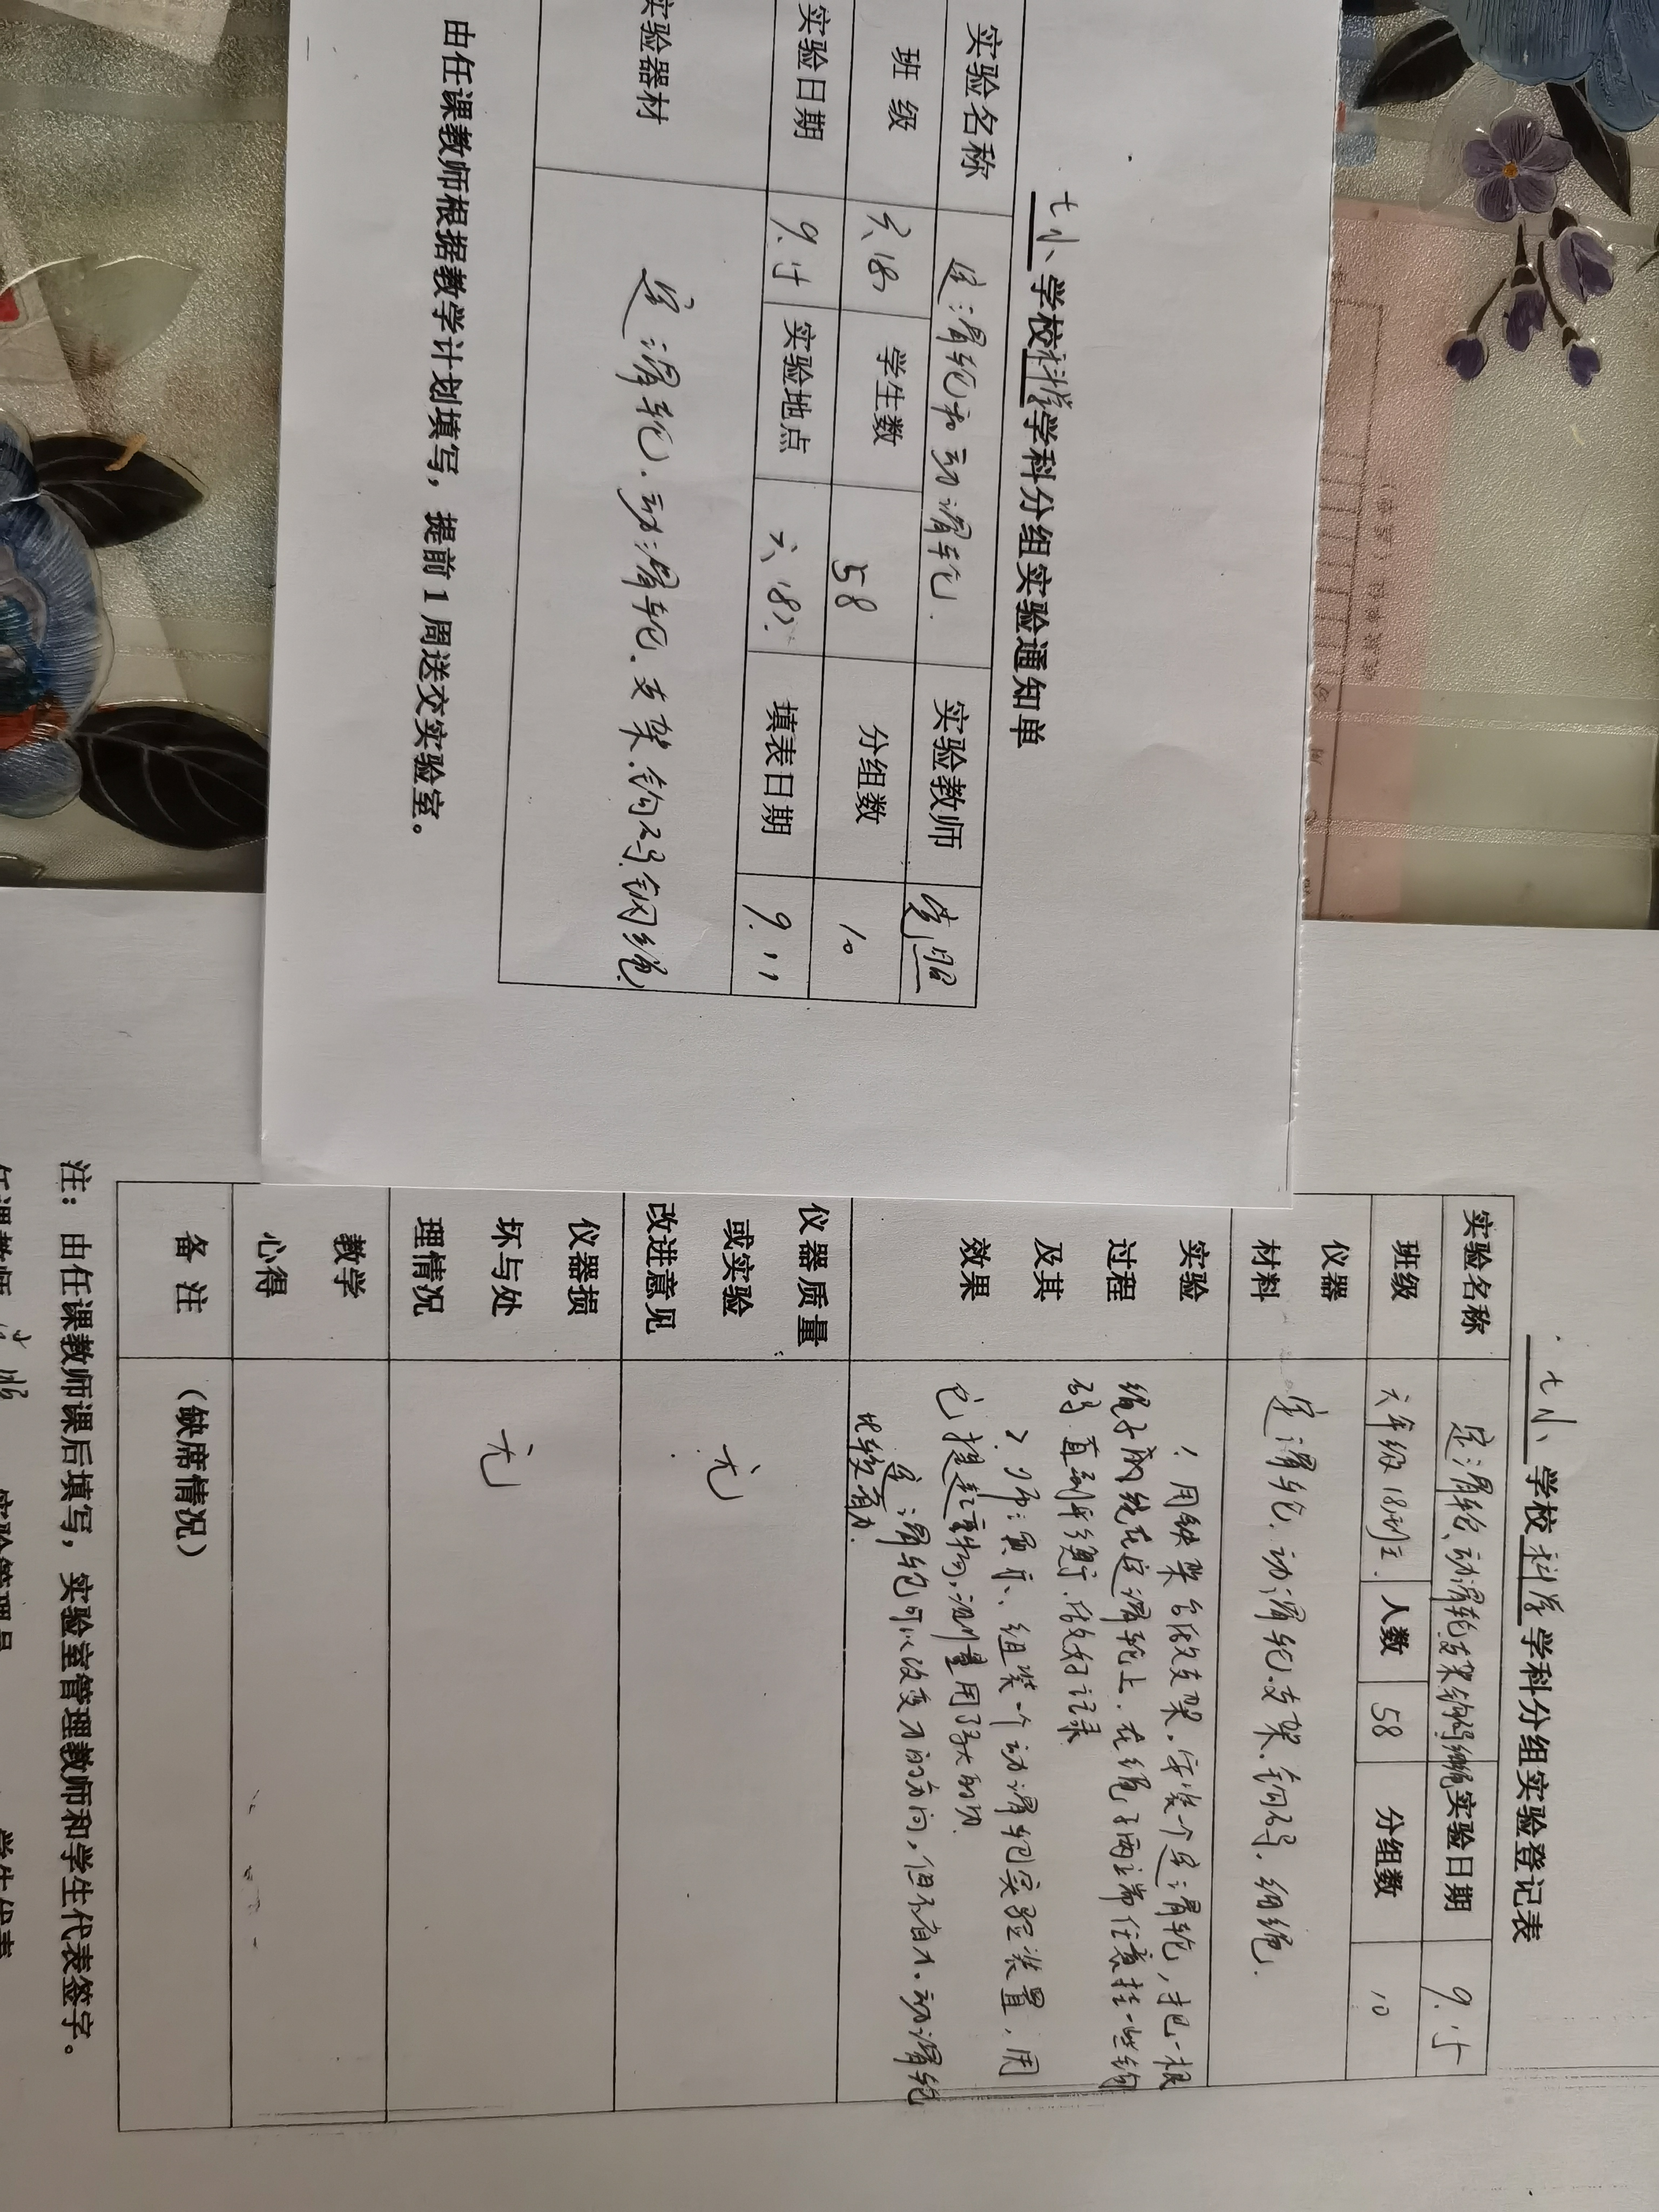 七小学校科学学科分组实验通知单
实验名称 定滑轮和动滑轮. 实验教师
班 级 六、18 学生数 58 分组数 10
实验日期 9.15 实验地点 六、18 填表日期 9.11
实验器材 定滑轮.动滑轮.支架.钩码.钢绳
由任课教师根据教学计划填写，提前1周送交实验室。
七小学校科学学科分组实验登记表
实验名称 定滑轮、动滑轮支架钩码细绳 实验日期 9.15
班级 六年级18班 人数 58 分组数 10
仪器
材料
定滑轮.动滑轮.支架.钩码.细绳.
实验
过程
及其
效果
1.用铁架台做支架.安装个定滑轮,把一根
绳子成绕在定滑轮上.在绳子两端任意挂一些钩
码直到平衡.做好记录
2.师演示、组装一个动滑轮实验装置,用
它提起重物,测量用了多大的力.
定滑轮可以改变力的方向,但不省力.动滑轮
比较省力.
仪器质量
或实验
改进意见
无
仪器损
坏与处
理情况
无
教学
心得
备 注 （缺席情况）
注：由任课教师课后填写，实验室管理教师和学生代表签字。
任课教师 实验管理员 学生代表